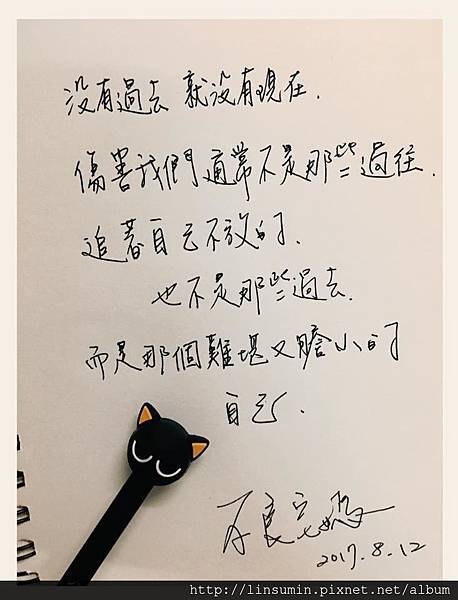 沒有過去 就沒有現在.
傷害我們通常不是那些過往.
追著自己不放的.
也不是那些過去.
而是那個難堪又膽小的
自己.
2017.8.12
http://linsumin.pixnet.net/album